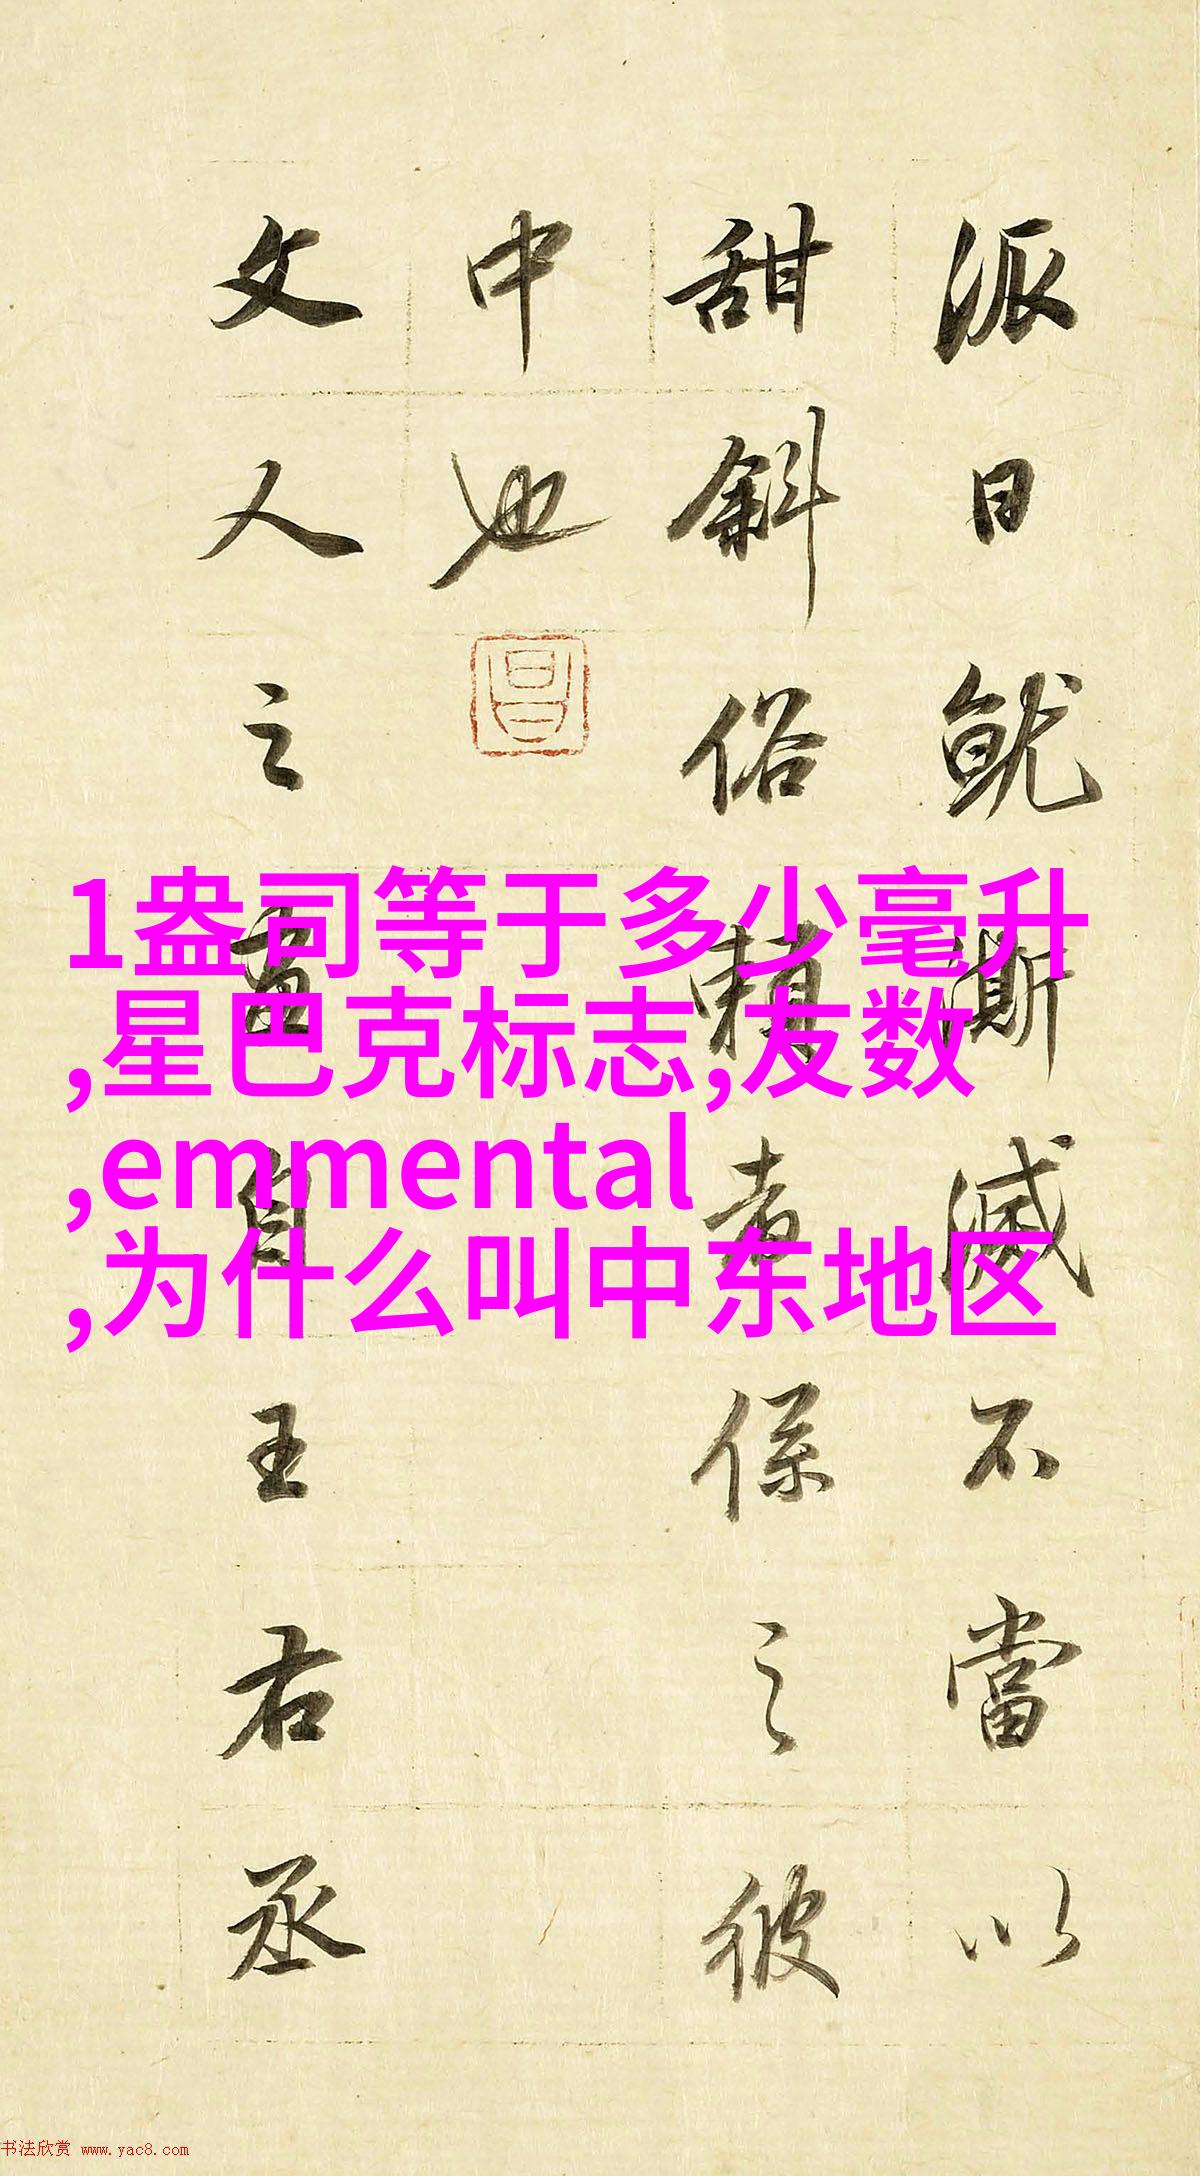 派日就澌滅不當以
甜斜俗賴者係之彼
中也
昌
文人之畫自王右丞
1盎司等于多少毫升
,星巴克标志,友数
,emmental
,为什么叫中东地区
书法欣赏 www.yac8.com